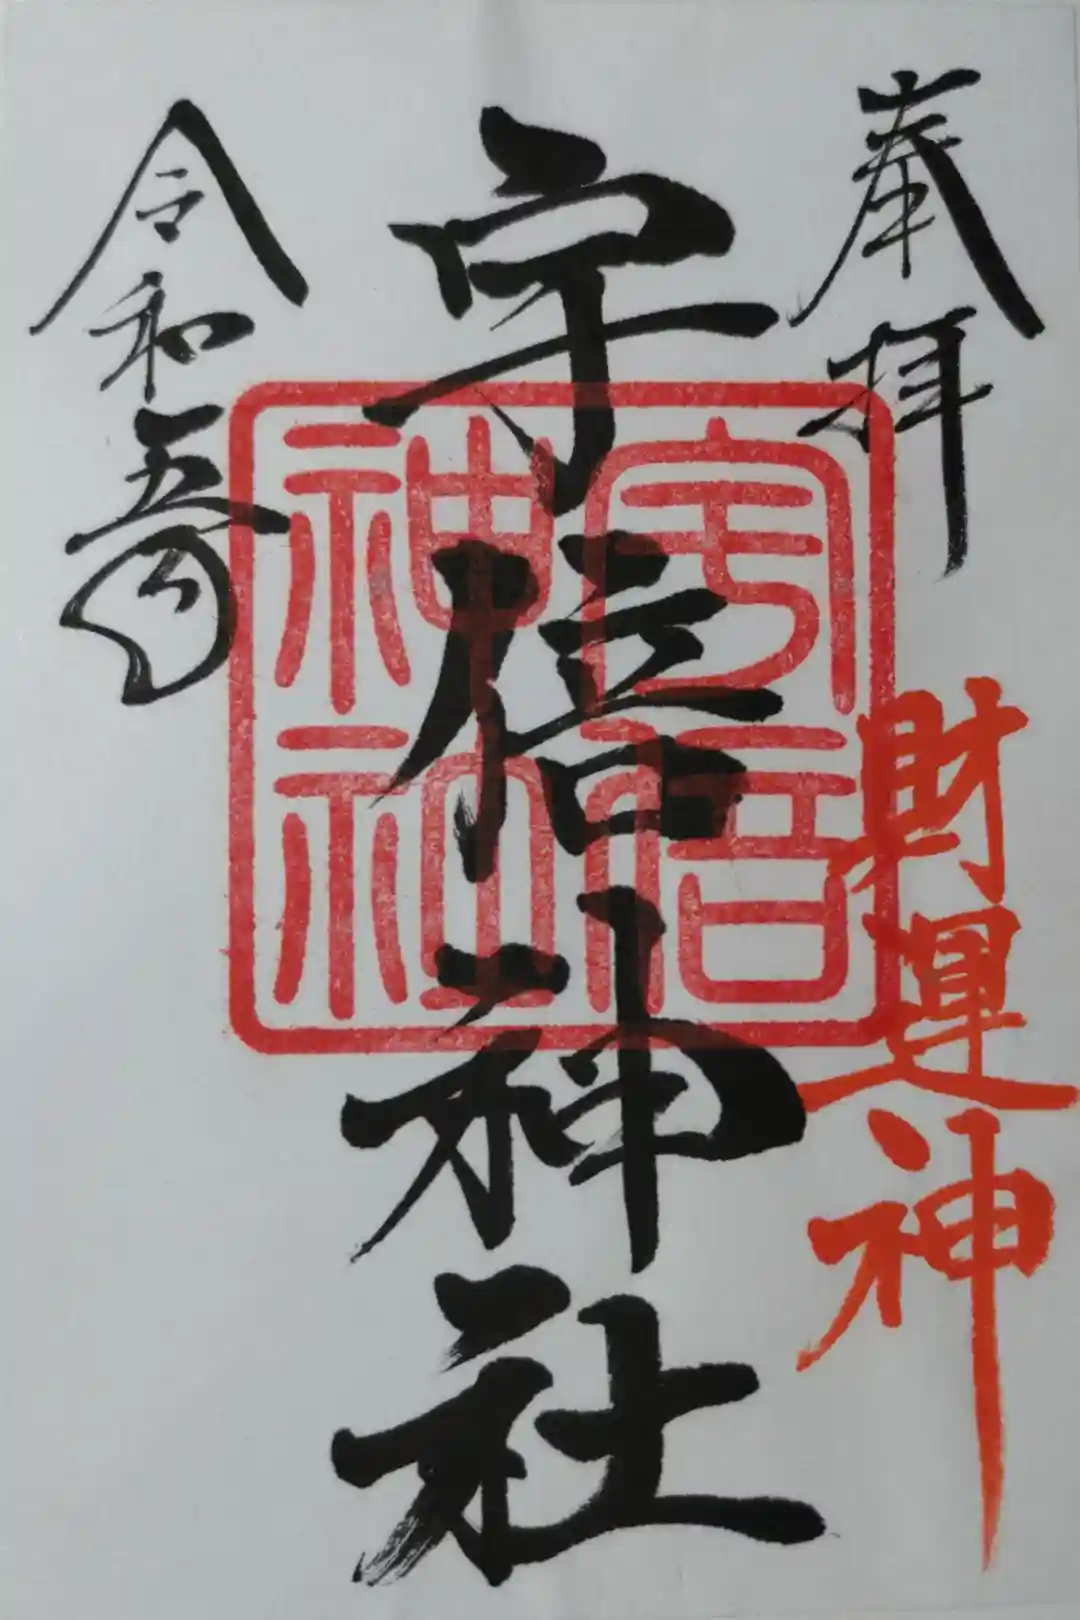 奉拝
財運神
宇倍神社
宇倍
神社
令和五